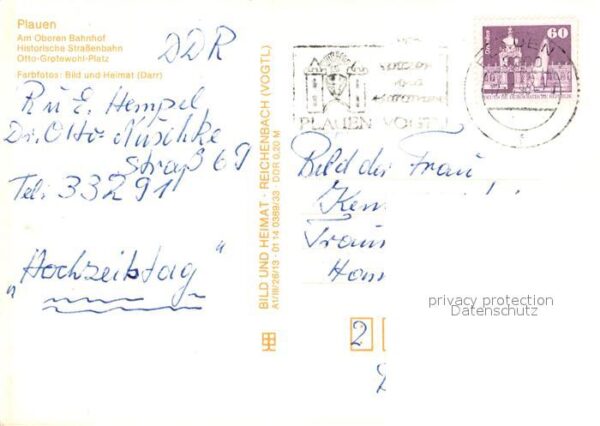 Plauen
Am Oberen Bahnhof
Historische Straßenbahn
Otto-Grotewohl-Platz
Farbfotos: Bild und Heimat (Darr)
DDR
R u E. Hempel,
Dr. Otto-Nuschke
Straß 69
Tel: 33291
„Hochzeitstag"
BILD UND HEIMAT · REICHENBACH (VOGTL)
A1/III/26/13 · 01 14 0389/33 · DDR 0,20 M
PLAUEN VOGTL
60
Bild der Frau
Ken
Ham
privacy protection
Datenschutz
2